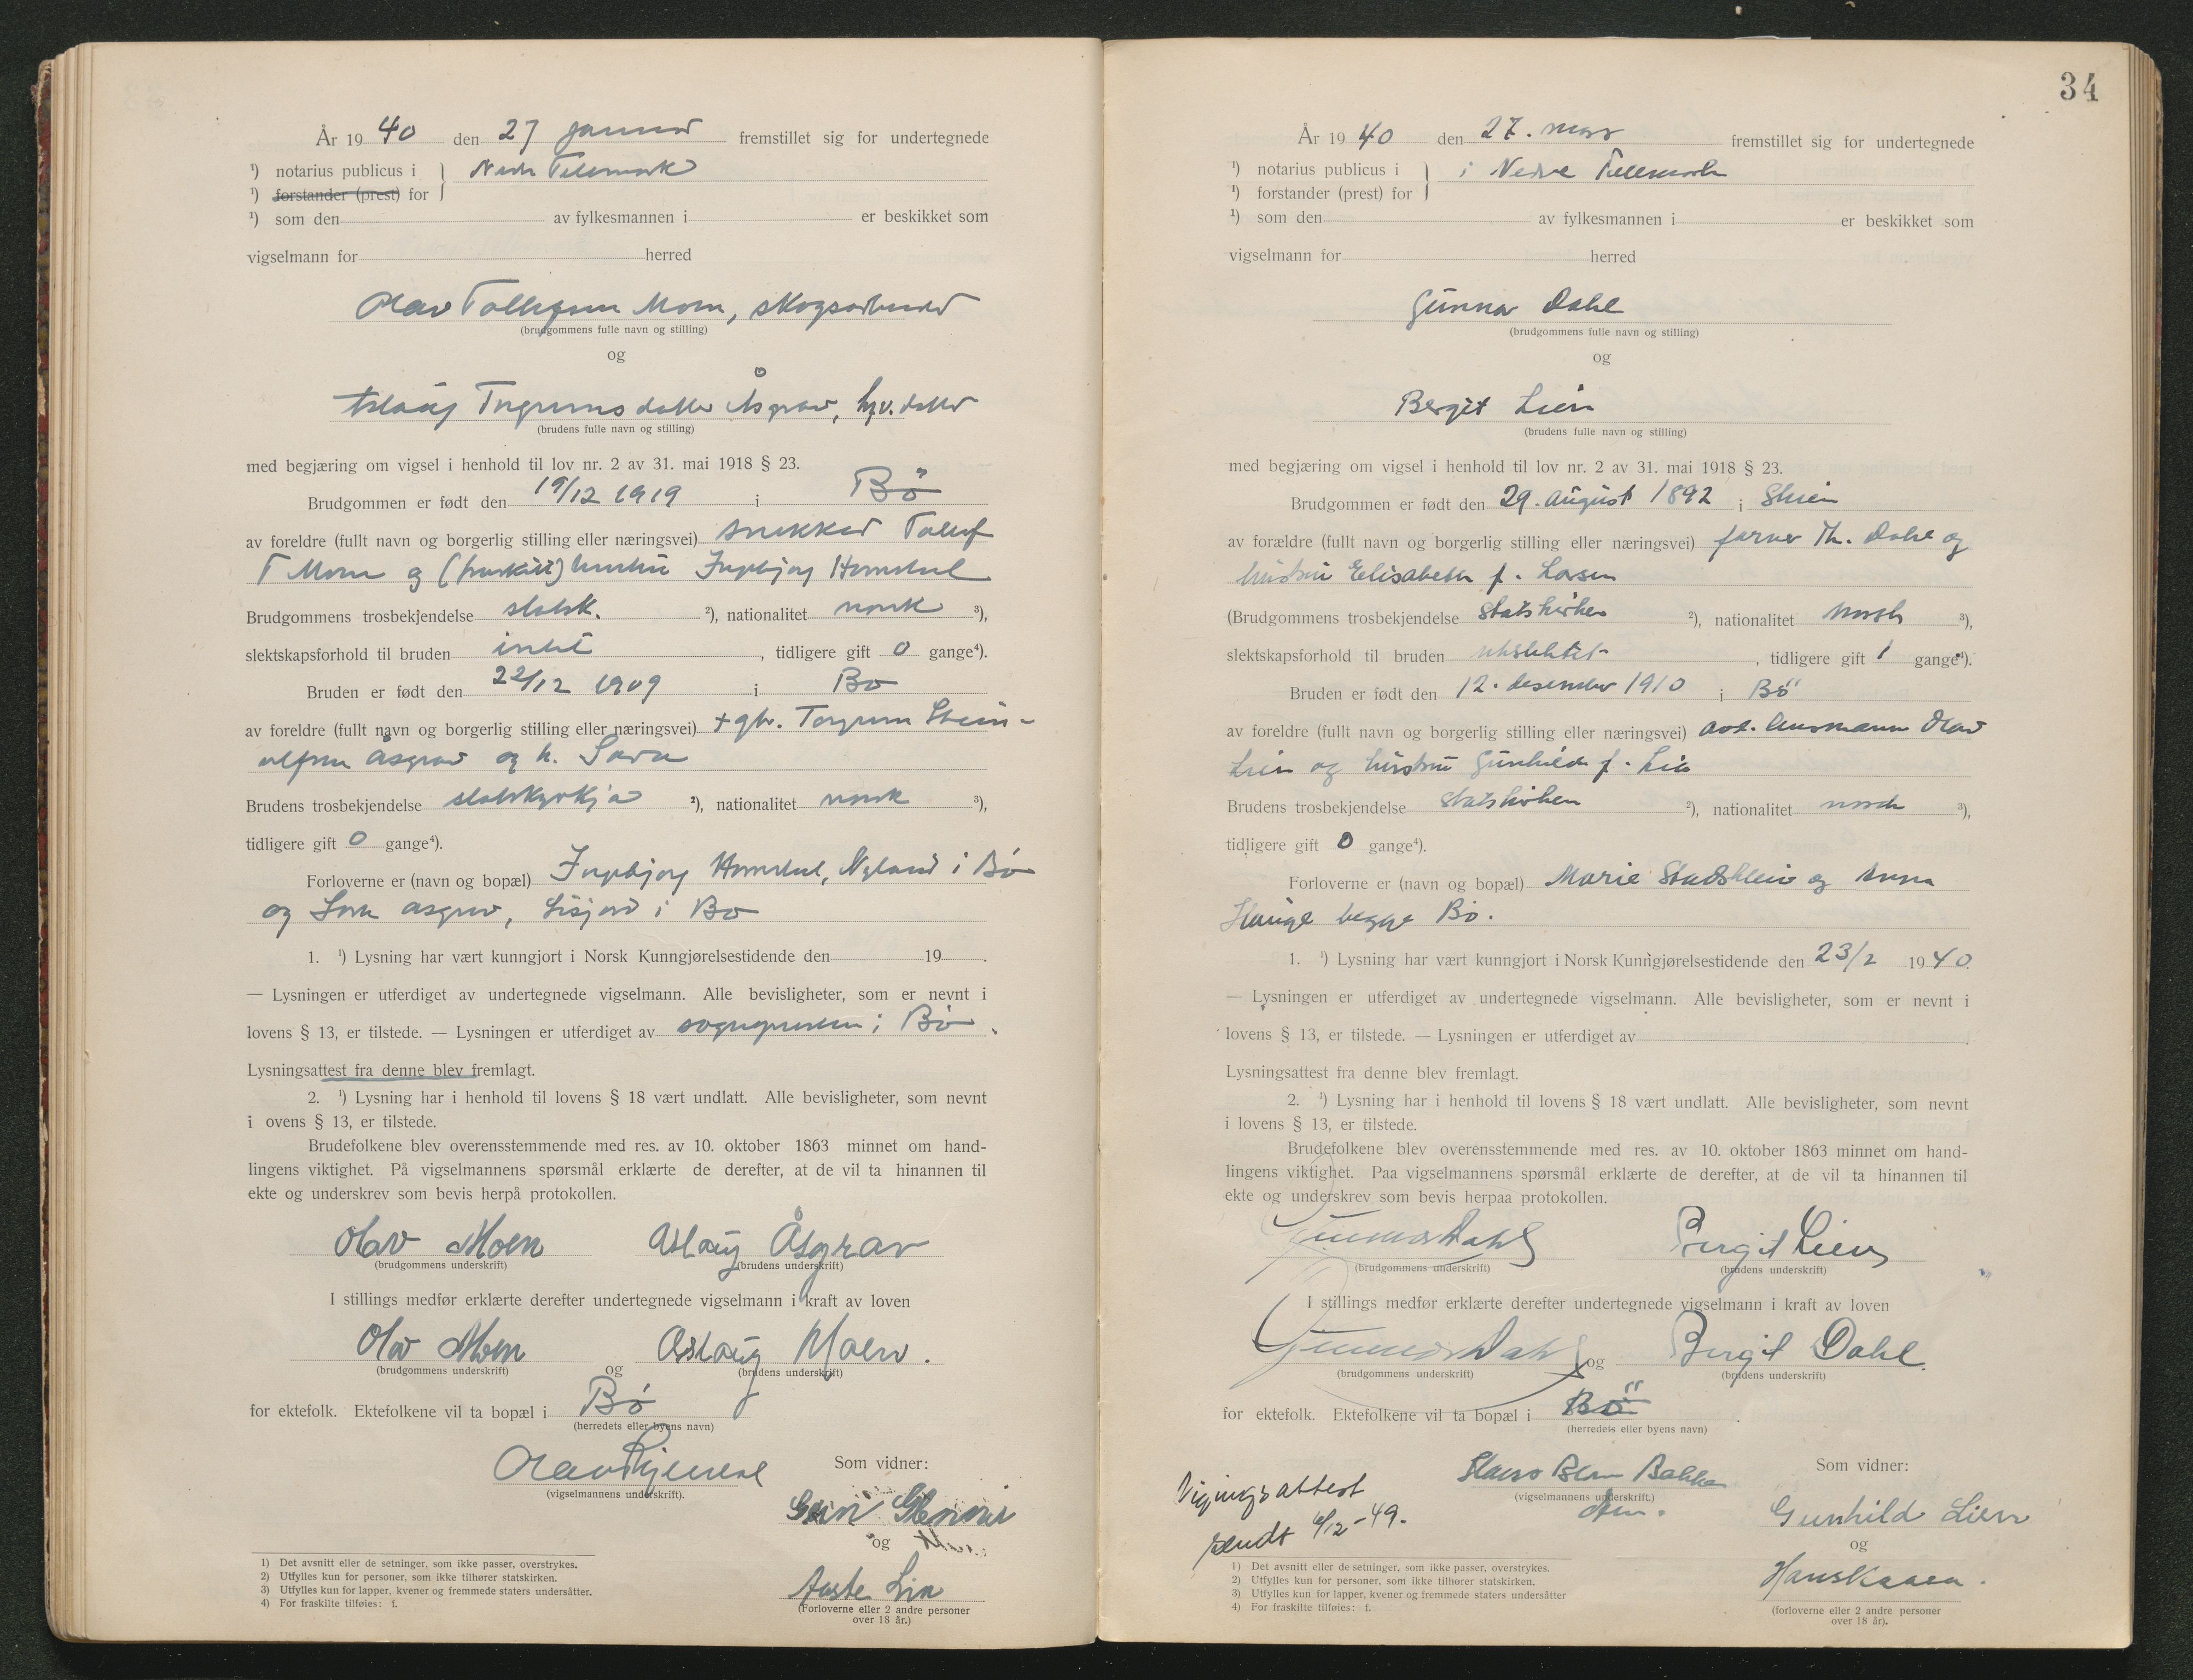 År 19 40 den 27 januar fremstillet sig for undertegnede
¹) notarius publicus i } Nedre Telemark
¹) forstander (prest) for
¹) som den av fylkesmannen i er beskikket som
vigselmann for herred
Olav Tollefsen Moen, skogsarbeider
(brudgommens fulle navn og stilling)
og
Aslaug Torgrimsdatter Åsgrav, hgv. datter
(brudens fulle navn og stilling)
med begjæring om vigsel i henhold til lov nr. 2 av 31. mai 1918 § 23.
Brudgommen er født den 19/12 1919 i Bö
av foreldre (fullt navn og borgerlig stilling eller næringsvei) snekker Tollef
T Moen og (fraskilt) hustru Ingebjørg Homstul
Brudgommens trosbekjendelse statsk. ²), nationalitet norsk ³),
slektskapsforhold til bruden intet, tidligere gift 0 gange⁴).
Bruden er født den 22/12 1909 i Bø
av foreldre (fullt navn og borgerlig stilling eller næringsvei) + gbr. Torgrim Stein-
ulfsen Åsgrav og h. Sara
Brudens trosbekjendelse statskyrkja ²), nationalitet norsk ³),
tidligere gift 0 gange⁴).
Forloverne er (navn og bopæl) Ingebjørg Homstul, Nyland i Bø
og Sara Åsgrav, i Bø
1. ¹) Lysning har vært kunngjort i Norsk Kunngjørelsestidende den 19 .
— Lysningen er utferdiget av undertegnede vigselmann. Alle bevisligheter, som er nevnt i
lovens § 13, er tilstede. — Lysningen er utferdiget av sognepresten i Bø.
Lysningsattest fra denne blev fremlagt.
2. ¹) Lysning har i henhold til lovens § 18 vært undlatt. Alle bevisligheter, som nevnt
i ovens § 13, er tilstede.
Brudefolkene blev overensstemmende med res. av 10. oktober 1863 minnet om hand-
lingens viktighet. På vigselmannens spørsmål erklærte de derefter, at de vil ta hinannen til
ekte og underskrev som bevis herpå protokollen.
Olav Moen Aslaug Åsgrav
(brudgommens underskrift) (brudens underskrift)
I stillings medfør erklærte derefter undertegnede vigselmann i kraft av loven
Olav Moen og Aslaug Moen.
(brudgommens underskrift) (brudens underskrift)
for ektefolk. Ektefolkene vil ta bopæl i Bø
(herredets eller byens navn)
Olav
(vigselmannens underskrift).
Som vidner:
og
Aaste Lia
(Forloverne eller 2 andre personer
over 18 år.)
1) Det avsnitt eller de setninger, som ikke passer, overstrykes.
2) Utfylles kun for personer, som ikke tilhører statskirken.
3) Utfylles kun for lapper, kvener og fremmede staters undersåtter.
4) For fraskilte tilføies: f.
34
År 19 40 den 27. mars fremstillet sig for undertegnede
¹) notarius publicus i } i Nedre Telemark
¹) forstander (prest) for
¹) som den av fylkesmannen i er beskikket som
vigselmann for herred
Gunnar Dahl
(brudgommens fulle navn og stilling)
og
Bergit Lien
(brudens fulle navn og stilling)
med begjæring om vigsel i henhold til lov nr. 2 av 31. mai 1918 § 23.
Brudgommen er født den 29. august 1892 i Skien
av forældre (fullt navn og borgerlig stilling eller næringsvei) farver Th. Dahl og
hustru Elisabeth f. Larsen
(Brudgommens trosbekjendelse Statskirken ²), nationalitet norsk ³),
slektskapsforhold til bruden ubeslektet, tidligere gift 1 gange⁴).
Bruden er født den 12. desember 1910 i Bö
av foreldre (fullt navn og borgerlig stilling eller næringsvei) avd. lensmann Olav
Lien og hustru Gunhild f. Lie
Brudens trosbekjendelse Statskirken ²), nationalitet norsk ³),
tidligere gift 0 gange⁴).
Forloverne er (navn og bopæl) Marie Stadskleiv og Anna
Hauge begge Bø.
1. ¹) Lysning har vært kunngjort i Norsk Kunngjørelsestidende den 23/2 1940.
— Lysningen er utferdiget av undertegnede vigselmann. Alle bevisligheter, som er nevnt i
lovens § 13, er tilstede. — Lysningen er utferdiget av
Lysningsattest fra denne blev fremlagt.
2. ¹) Lysning har i henhold til lovens § 18 vært undlatt. Alle bevisligheter, som nevnt
i lovens § 13, er tilstede.
Brudefolkene blev overensstemmende med res. av 10. oktober 1863 minnet om hand-
lingens viktighet. Paa vigselmannens spørsmål erklærte de derefter, at de vil ta hinannen til
ekte og underskrev som bevis herpaa protokollen.
Gunnar Dahl Bergit Lien
(brudgommens underskrift) (brudens underskrift)
I stillings medfør erklærte derefter undertegnede vigselmann i kraft av loven
Gunnar Dahl og Bergit Dahl.
(brudgommens underskrift) (brudens underskrift)
for ektefolk. Ektefolkene vil ta bopæl i Bö
(herredets eller byens navn)
Bakka
(vigselmannens underskrift.)
Vigingsattest
sendt 6/12-49.
Som vidner:
Gunhild Lien
og
Hans Kaasa.
(forloverne eller 2 andre personer
over 18 år).
1) Det avsnitt eller de setninger, som ikke passer, overstrykes.
2) Utfylles kun for personer, som ikke tilhører statskirken.
3) Utfylles kun for lapper, kvener og fremmede staters undersåtter
4) For fraskilte tilføies: f.